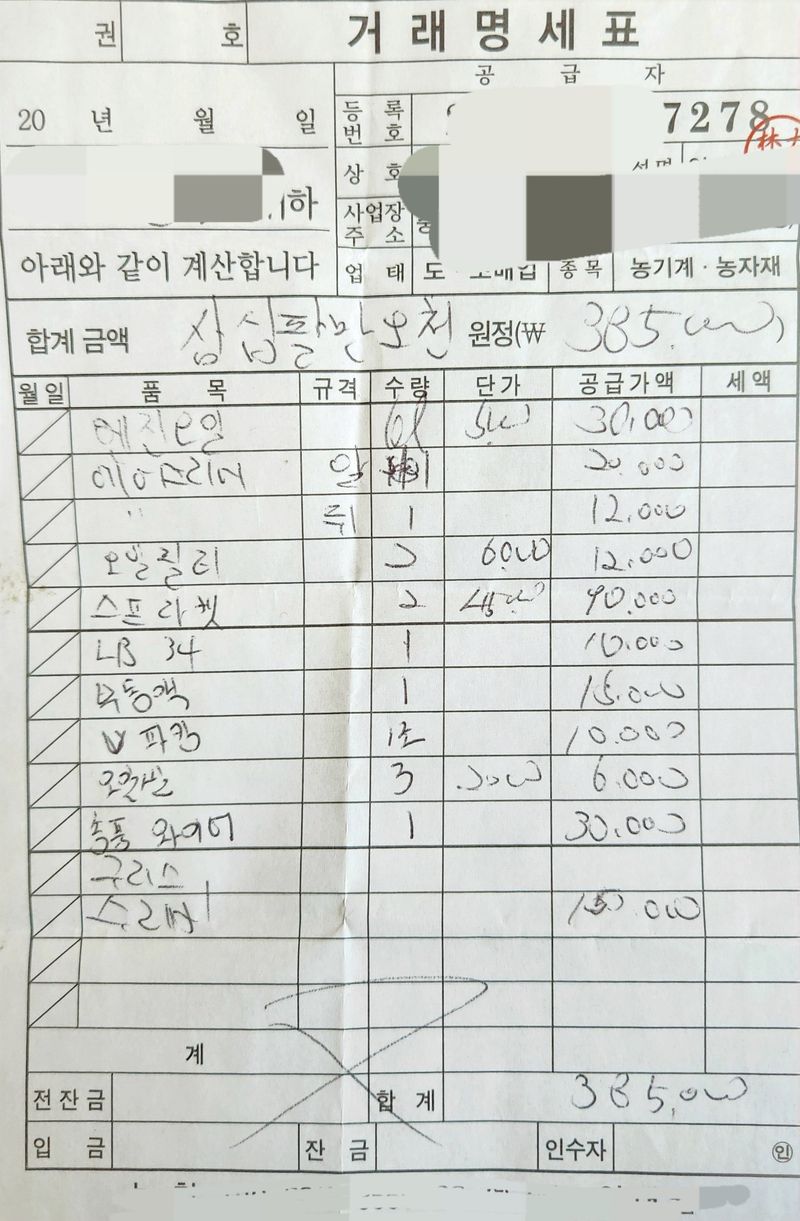 권 호 거래명세표
공급자
20 년 월 일
등록번호 7278
상호 성명
귀하
사업장주소
아래와 같이 계산합니다
업태 도·소매업 종목 농기계·농자재
합계금액 삼십팔만오천 원정(₩ 385,000)
월일 품목 규격 수량 단가 공급가액 세액
엔진오일 6l 5000 30,000
에어크리너 앞 1 20,000
〃 뒤 1 12,000
오일필터 2 6000 12,000
스프라켓 2 45000 90,000
LB 34 1 10,000
부동액 1 15,000
V 파킹 1조 10,000
오일씰 3 2000 6,000
송풍 와이어 1 30,000
구리스
수리비 150,000
계
전잔금 합계 385,000
입금 잔금 인수자 ㊞